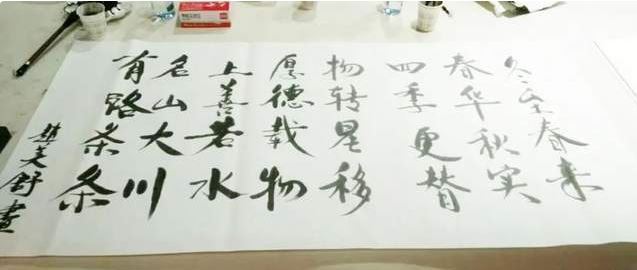 冬至春来
春华秋实
四季更替
物转星移
厚德载物
上善若水
名山大川
有路条条